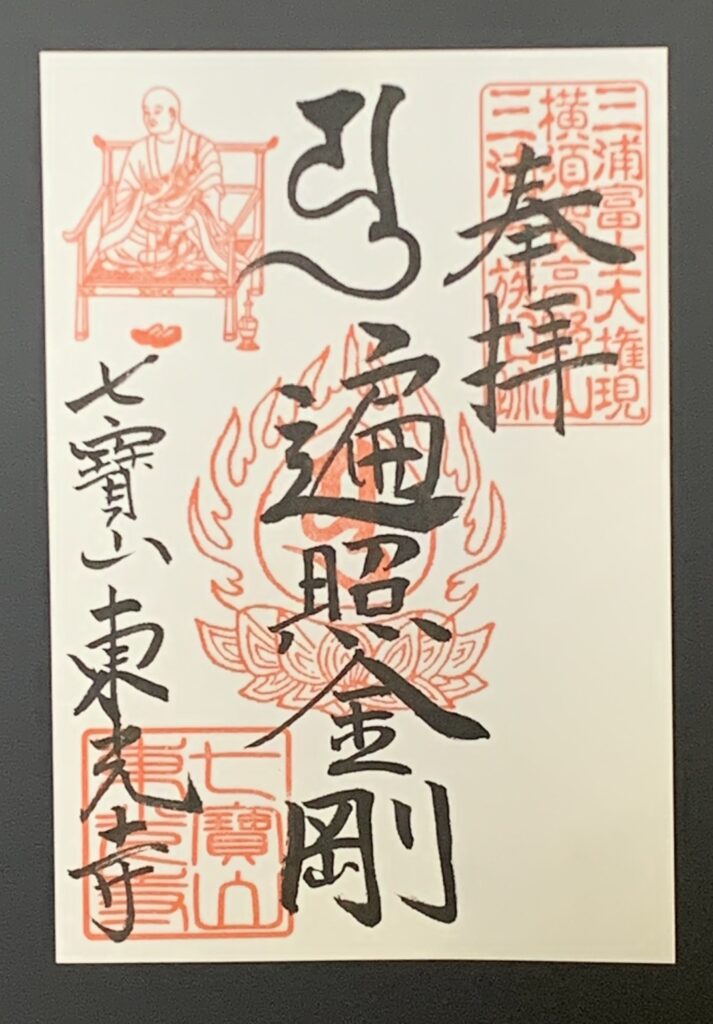 奉拝
三浦富士大権現
横須賀高野山
三浦
遍照金剛
七寳山東光寺
七寳山
東光寺